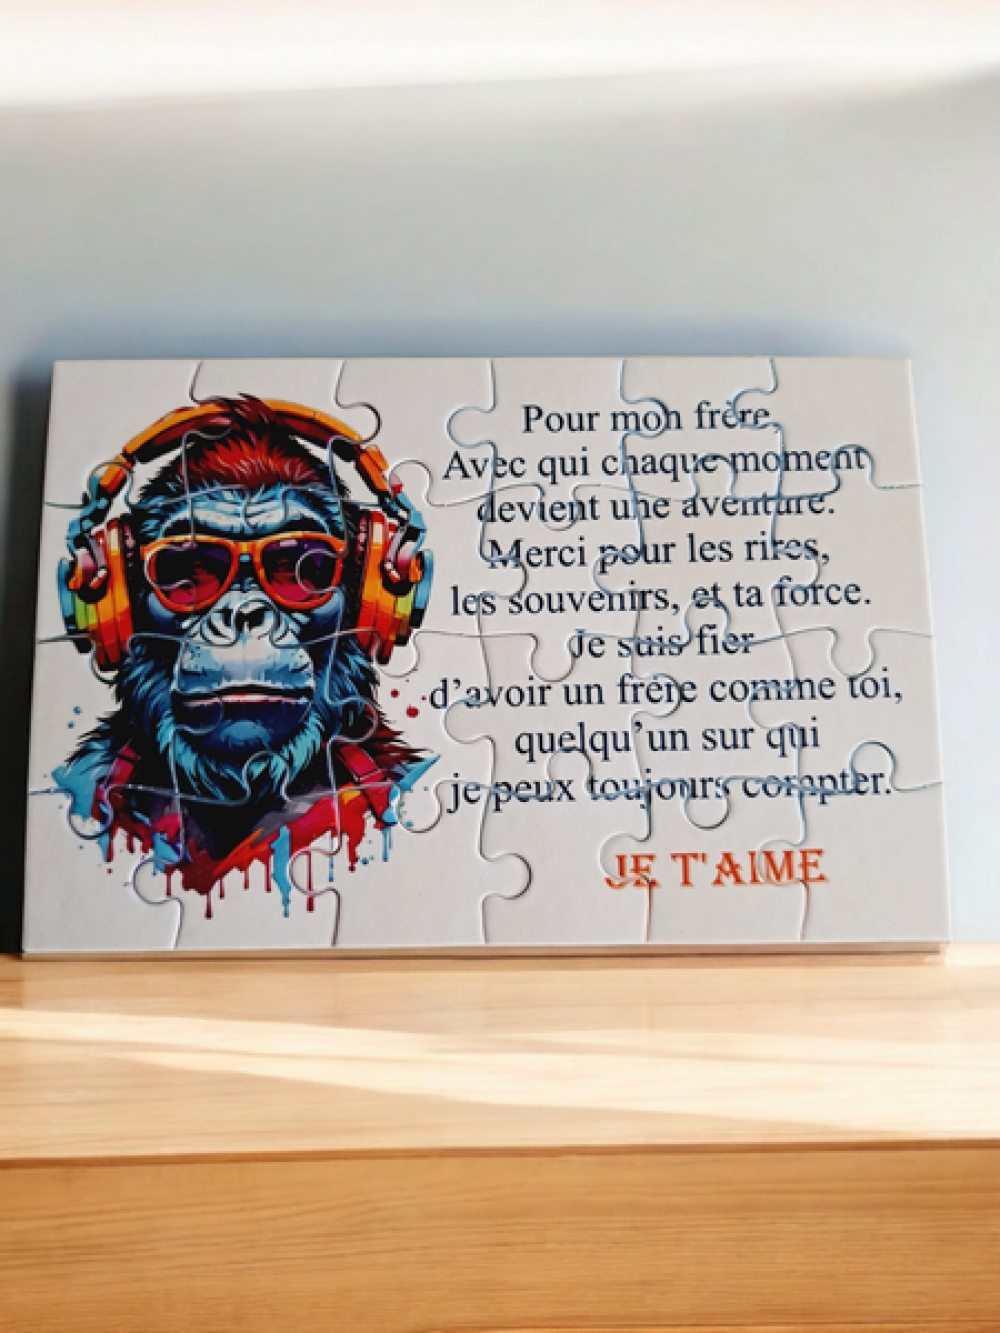 Pour mon frère,
Avec qui chaque moment
devient une aventure.
Merci pour les rires,
les souvenirs, et ta force.
Je suis fier
d’avoir un frère comme toi,
quelqu’un sur qui
je peux toujours compter.
JE T'AIME